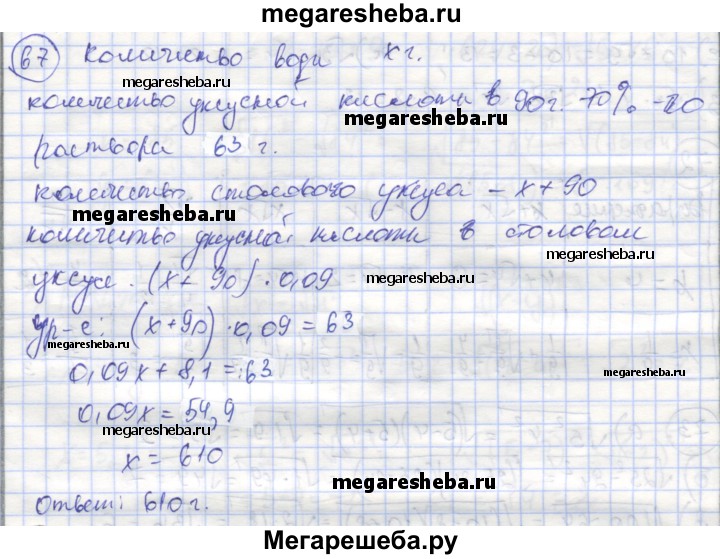 megaresheba.ru
67 Количество воды x г.
megaresheba.ru
количество уксусной кислоты в 90 г. 70% -го
megaresheba.ru
раствора 63 г.
количество столового уксуса – x + 90
megaresheba.ru
количество уксусной кислоты в столовом
уксусе. (x + 90) · 0,09
megaresheba.ru
ур-е: (x+90) · 0,09 = 63
megaresheba.ru
0,09x + 8,1 = 63
megaresheba.ru
0,09x = 54,9
megaresheba.ru
x = 610
megaresheba.ru
Ответ: 610 г.
Мегарешеба.ру